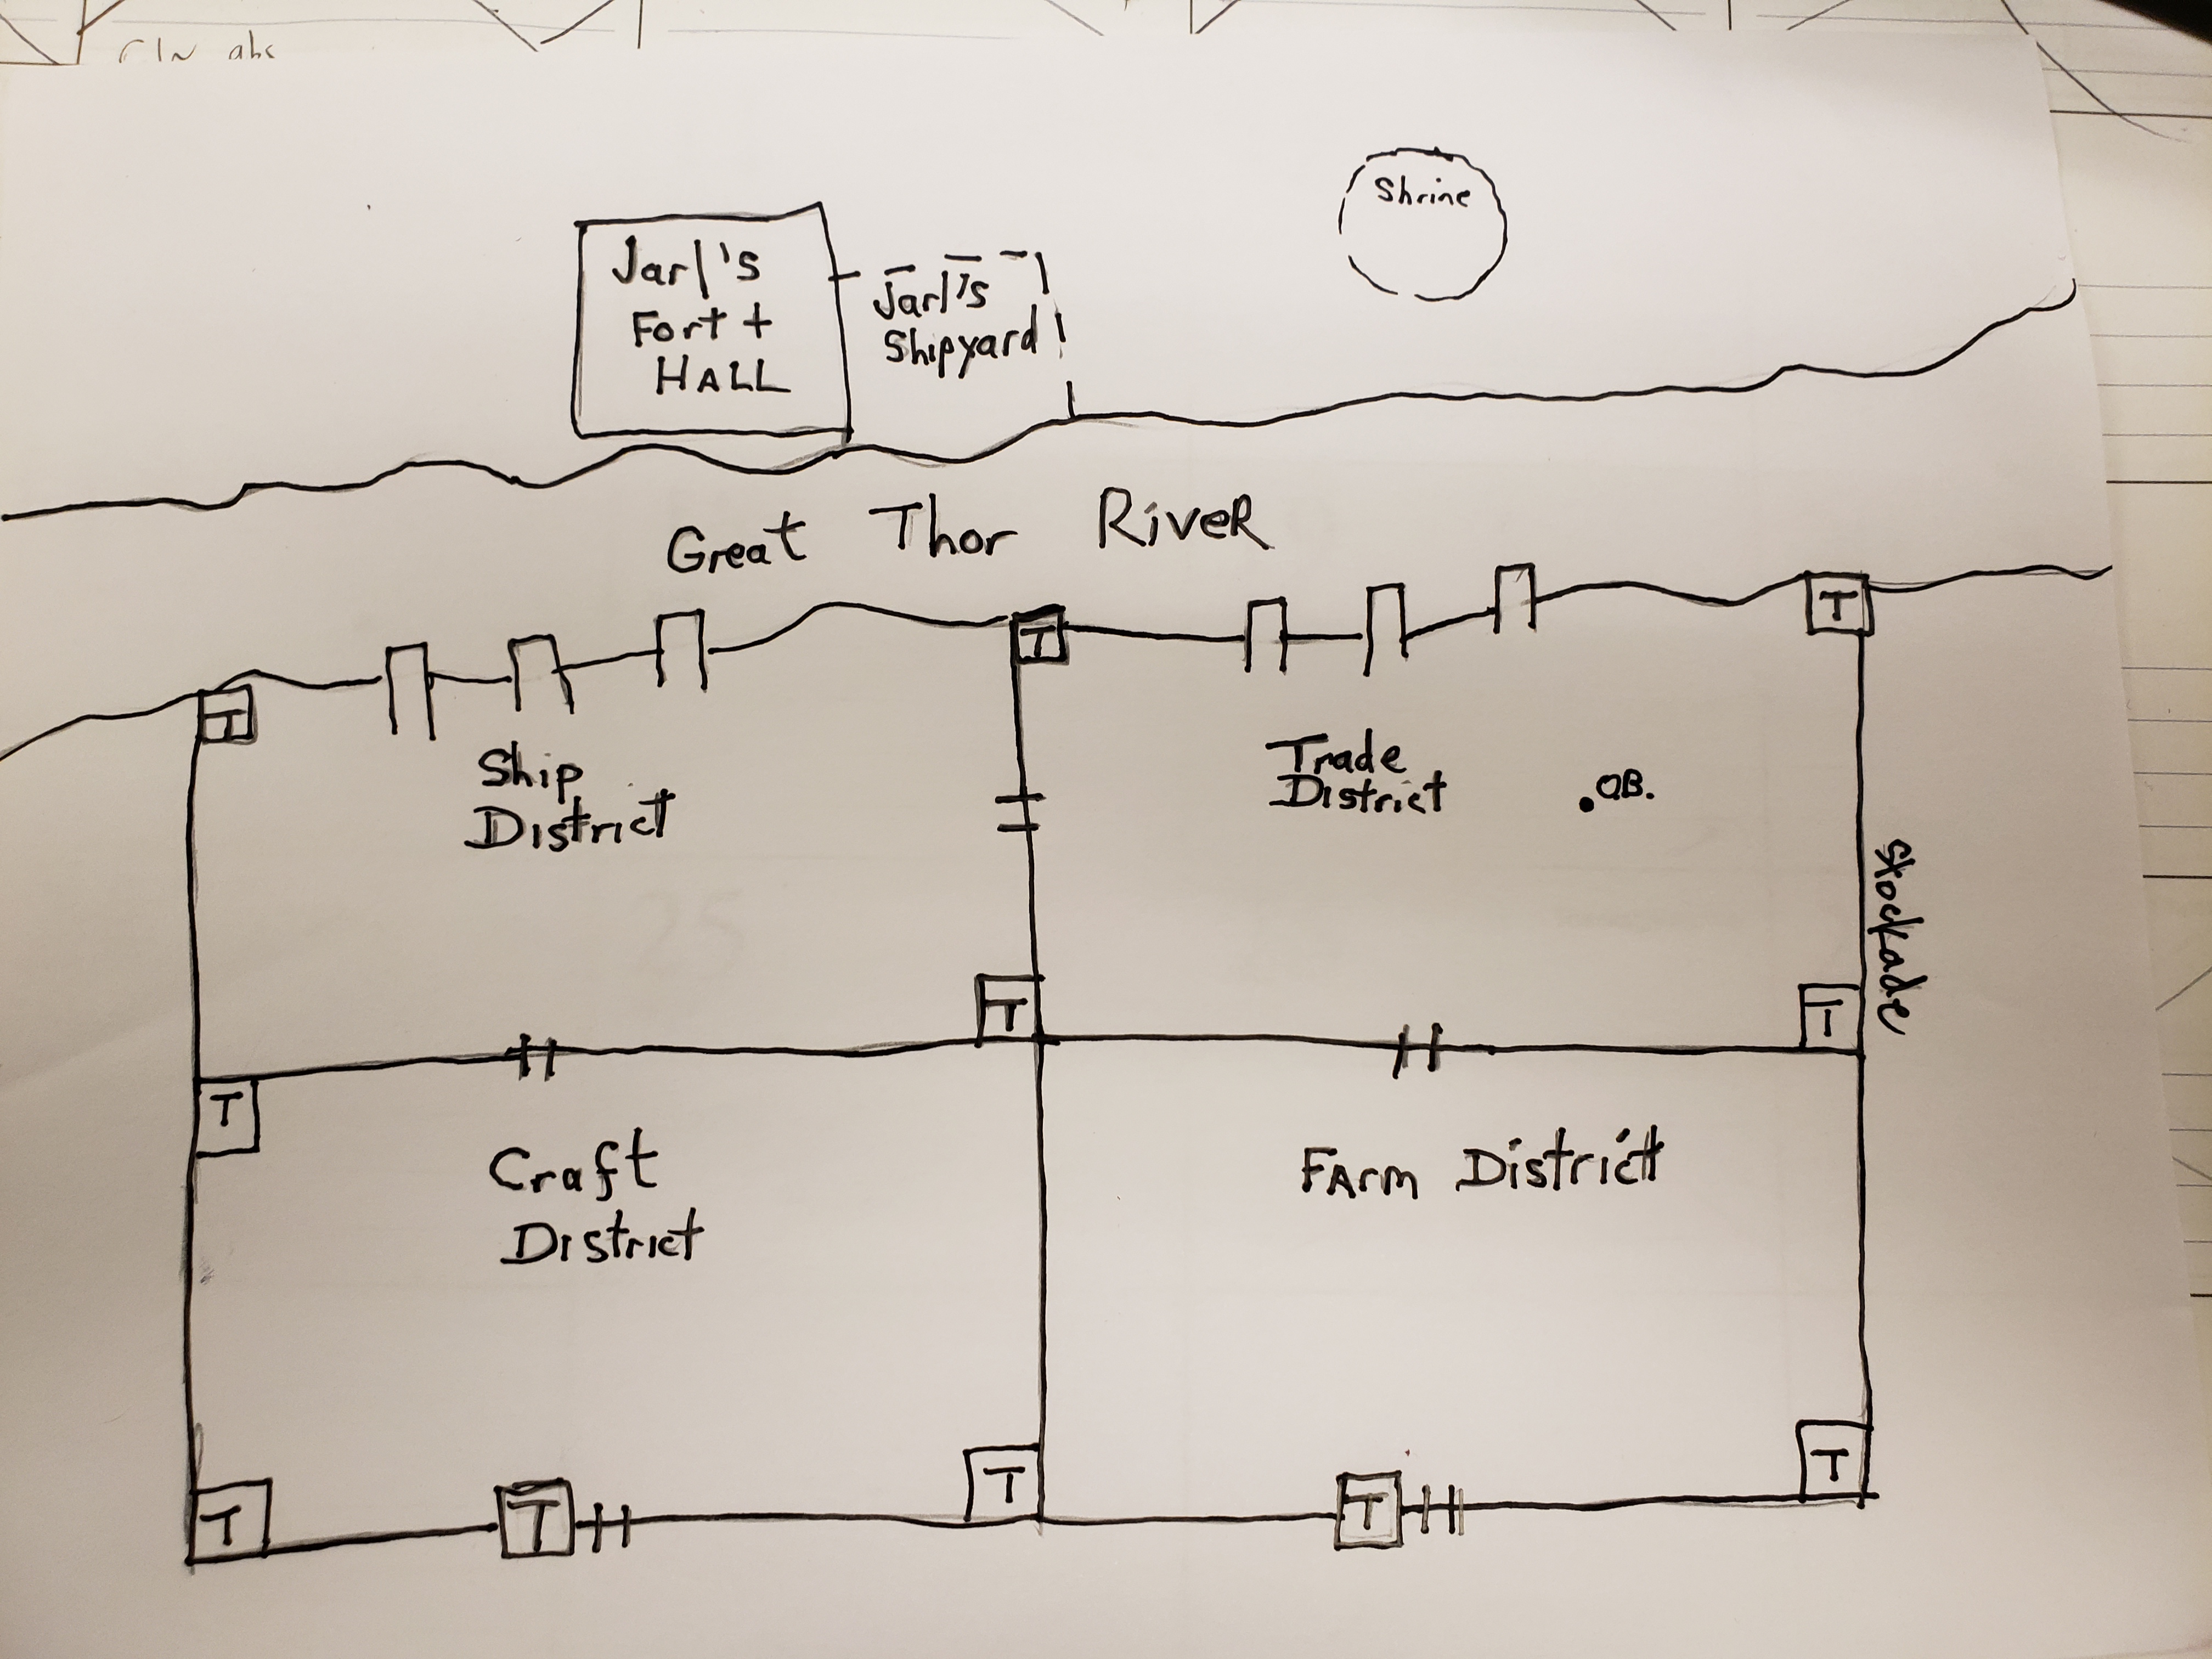 abc
Shrine
Jarl's
Fort +
HALL
Jarl's
Shipyard
Great Thor River
T
T
T
Ship
District
Trade
District
.OB.
Stockade
T
T
T
25
Craft
District
Farm District
T
T
T
T
T